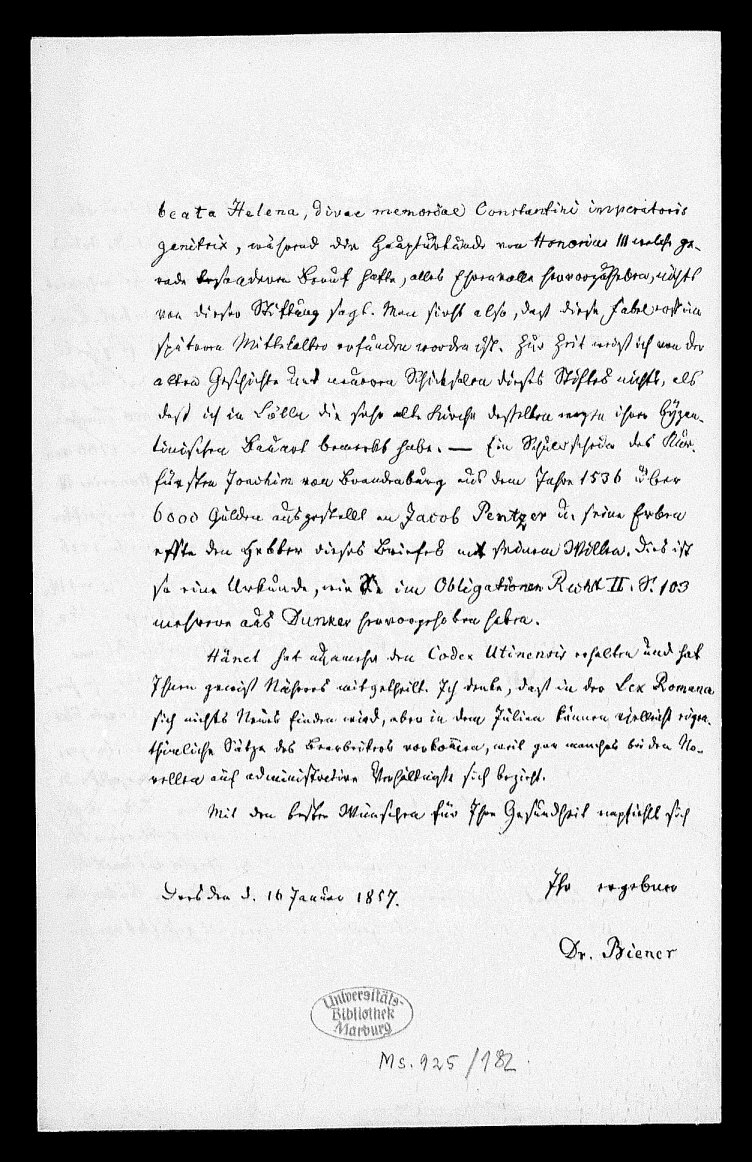 beata Helena, divae memoriae Constantini imperatoris
genitrix, während die Haupturkunde von Honorius III welche ge-
rade besonderen Beruf hatte, alles Ehrenvolle hervorzuheben, nichts
von dieser Stiftung sagt. Man sieht also, daß diese Fabel erst im
späteren Mittelalter erfunden worden ist. Zur Zeit weiß ich von der
alten Geschichte und neueren Schicksalen dieses Stiftes nichts, als
daß ich in Cölln die sehr alte Kirche desselben wegen ihrer Byzan-
tinischen Bauart bemerkt habe. — Ein Schuldschein des Kur-
fürsten Joachim von Brandenburg aus dem Jahre 1536 über
6000 Gulden ausgestellt an Jacob Pentzer u. seine Erben
oder den Hebber dieses Briefes mit seinem Willen. Dies ist
so eine Urkunde, wie Sie im Obligationen Recht II. S. 103
mehrere aus Dunker hervorgehoben haben.
Hänel hat nunmehr den Codex Utinensis erhalten und hat
Ihnen gewiß Näheres mitgetheilt. Ich denke, daß in der Lex Romana
sich nichts Neues finden wird, aber in dem Julian können vielleicht eigen-
thümliche Sätze des Bearbeiters vorkommen, weil gar manches bei den No-
vellen auf administrative Verhältnisse sich bezieht.
Mit den besten Wünschen für Ihre Gesundheit empfiehlt sich
Ihr ergebener
Dresden d. 16 Januar 1857.
Dr. Biener
Universitäts-
Bibliothek
Marburg
Ms. 925/182